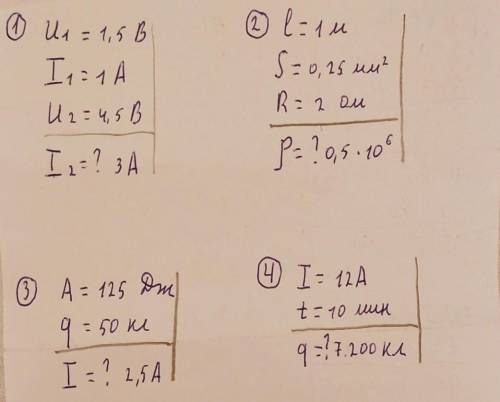 ① U₁ = 1,5 В
I₁ = 1 А
U₂ = 4,5 В
I₂ = ? 3 А
② l = 1 м
S = 0,25 мм²
R = 2 ом
ρ = ? 0,5 · 10⁶
③ A = 125 Дж
q = 50 кл
I = ? 2,5 А
④ I = 12 А
t = 10 мин
q = ? 7.200 Кл